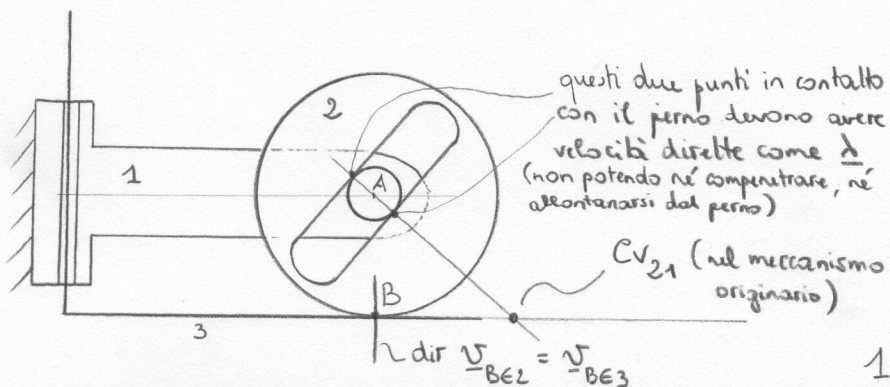 questi due punti in contatto
con il perno devono avere
velocità dirette come λ
(non potendo né compenetrare, né
allontanarsi dal perno)
2
1
A
CV21 (nel meccanismo
originario)
B
3
dir v B∈2 = v B∈3
1